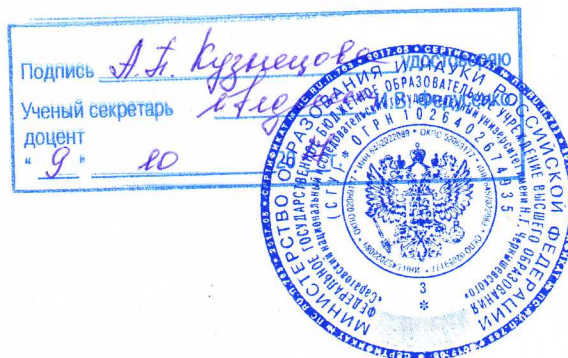 Подпись А.П. Кузнецова удостоверяю
Ученый секретарь И.В. Федусенко
доцент
" 9 " 10 20
МИНИСТЕРСТВО ОБРАЗОВАНИЯ И НАУКИ РОССИЙСКОЙ ФЕДЕРАЦИИ
ФЕДЕРАЛЬНОЕ ГОСУДАРСТВЕННОЕ БЮДЖЕТНОЕ ОБРАЗОВАТЕЛЬНОЕ УЧРЕЖДЕНИЕ ВЫСШЕГО ОБРАЗОВАНИЯ
«Саратовский национальный исследовательский государственный университет имени Н.Г. Чернышевского»
(СГУ) * ОГРН 1026402674935
3
*